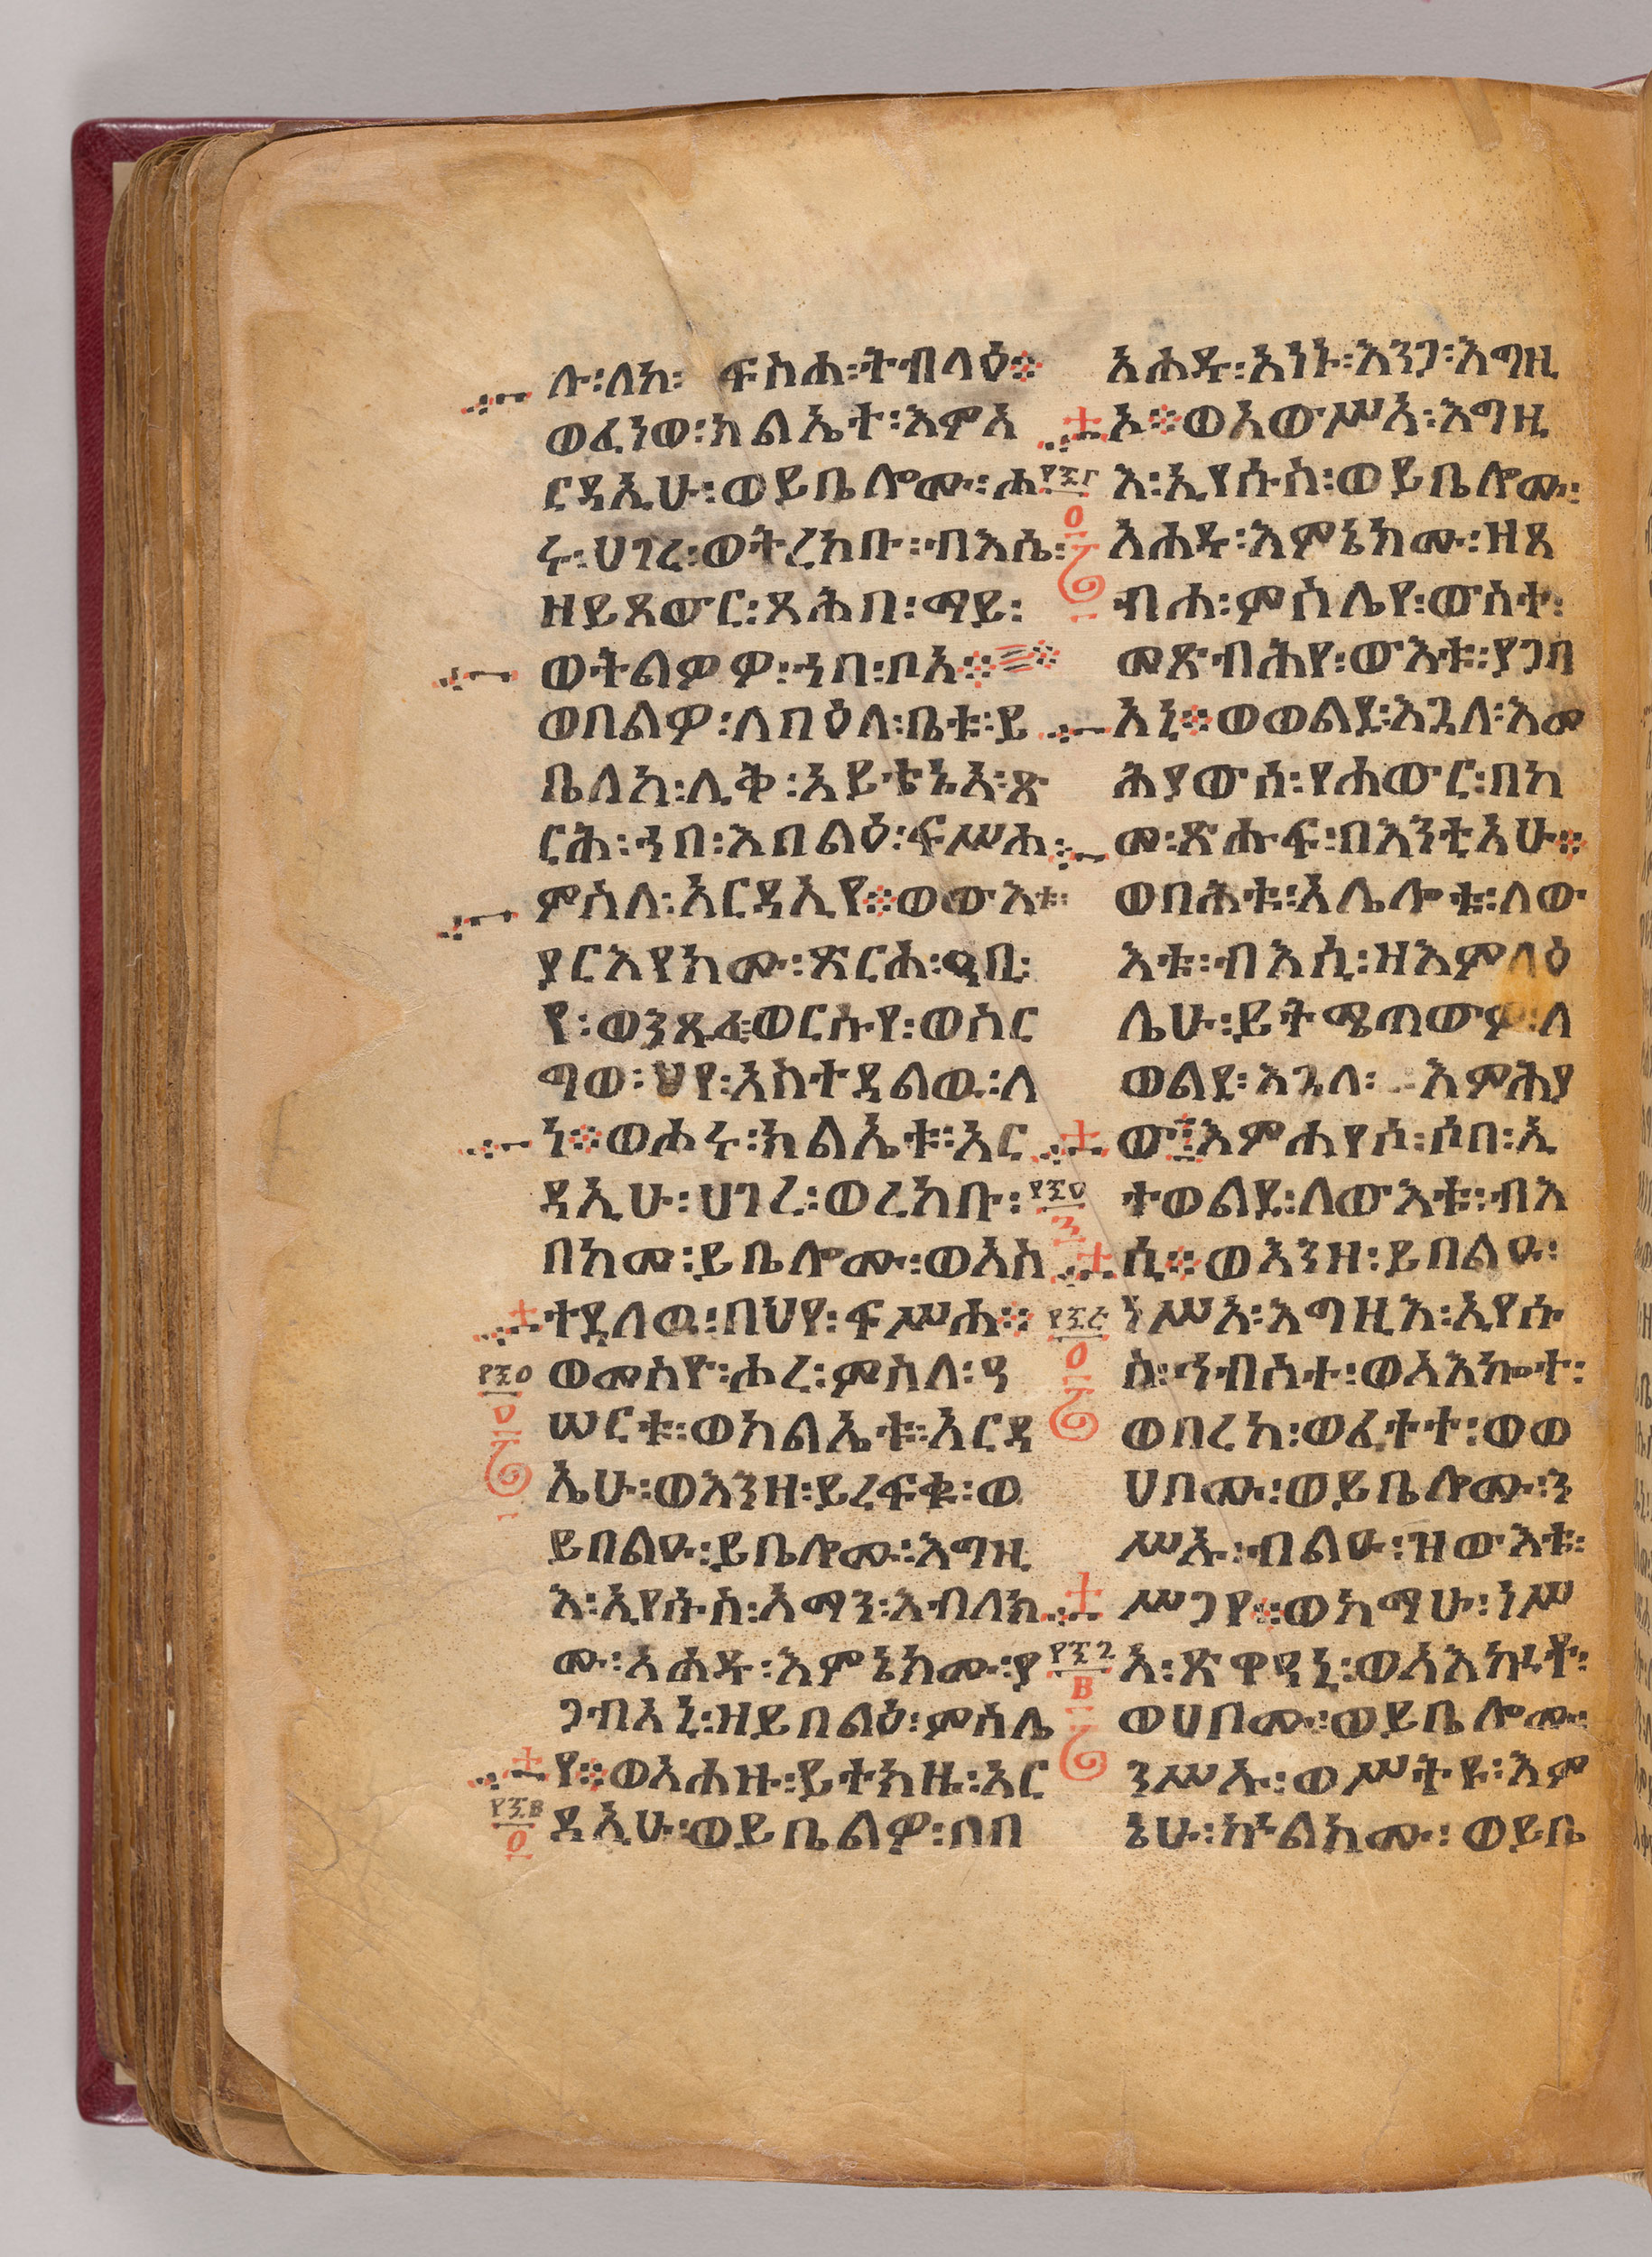 ሉ፡ለከ፡ ፍስሐ፡ትብላዕ፨
ወፈነወ፡ክልኤተ፡እምአ
ርዳኢሁ፡ወይቤሎሙ፡ሐ
ሩ፡ሀገረ፡ወትረከቡ፡ብእሴ፡
ዘይጸውር፡ጻሕበ፡ማይ፡
ወትልዎዎ፡ኀበ፡ቦአ፨
ወበልዎ፡ለበዕለ፡ቤቱ፡ይ
ቤለከ፡ሊቅ፡አይቴኑአ፡ጽ
ርሕ፡ኀበ፡እበልዕ፡ፍሥሐ
ምስለ፡አርዳኢየ፨ወውእቱ፡
ያርእየክሙ፡ጽርሐ፡ዓቢ፡
የ፡ወንጹፈ፡ወርሱየ፡ወስር
ግወ፡ህየ፡አስተዳልዉ፡ለ
ነ፨ወሖሩ፡ክልኤቱ፡አር
ዳኢሁ፡ሀገረ፡ወረከቡ፡
በከመ፡ይቤሎሙ፡ወአስ
ተዳለዉ፡በህየ፡ፍሥሐ፨
፻፶፬ ወመስዮ፡ሖረ፡ምስለ፡ዓ
ሠርቱ፡ወክልኤቱ፡አርዳ
ኢሁ፡ወእንዘ፡ይረፍቁ፡ወ
ይበልዑ፡ይቤሎሙ፡እግዚ
እ፡ኢየሱስ፡አማን፡እብለክ
ሙ፡አሐዱ፡እምኔክሙ፡ያ
ገብአኒ፡ዘይበልዕ፡ምስሌ
የ፨ወአሐዙ፡ይተክዙ፡አር
ዳኢሁ፡ወይቤልዎ፡በበ
አሐዱ፡አነኑ፡እንጋ፡እግዚ
ኦ፨ወአውሥአ፡እግዚ
እ፡ኢየሱስ፡ወይቤሎሙ፡
አሐዱ፡እምኔክሙ፡ዘጸ
ብሐ፡ምስሌየ፡ውስተ፡
መጽብሕየ፡ውእቱ፡ያገብ
አኒ፨ወወልደ፡እጓለ፡እመ
ሕያውሰ፡የሐውር፡በከ
መ፡ጽሑፍ፡በእንቲአሁ፨
ወበሕቱ፡አሌሎቱ፡ለው
እቱ፡ብእሲ፡ዘእምላዕ
ሌሁ፡ይትሜጠውዎ፡ለ
ወልደ፡እጓለ፡ እምሕያ
ው፨እምሐየሶ፡ሶበ፡ኢ
ተወልደ፡ለውእቱ፡ብእ
ሲ፨ወእንዘ፡ይበልዑ፡
ነሥአ፡እግዚእ፡ኢየሱ
ስ፡ኅብስተ፡ወአእኰተ፡
ወበረከ፡ወፈተተ፡ወወ
ሀበሙ፡ወይቤሎሙ፡ን
ሥኡ፡ብልዑ፡ዝውእቱ፡
ሥጋየ፨ወከማሁ፡ነሥ
አ፡ጽዋዓኒ፡ወአእኰቶ፡
ወሀበሙ፡ወይቤሎሙ፡
ንሥኡ፡ወሥትዩ፡እም
ኔሁ፡ኵልክሙ፡ወይቤ